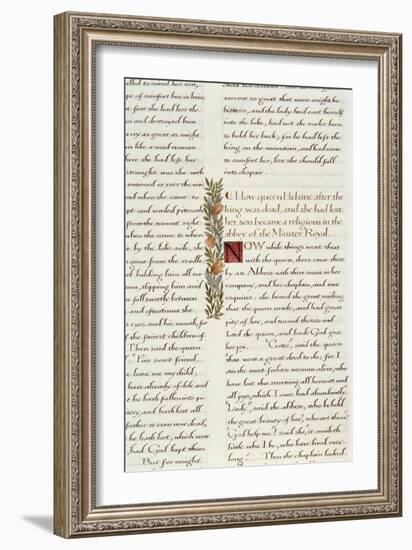 alled to mind her son,
pe of comfort but in him;
t fear she had lost the
en and destroyed him
cry as great as might
n like a mad woman
here she had left her
straight was she with
when she came to
e by the lake side, she
gone from the cradle
d holding him all na-
tam, clipping him and
s full sweetly between
and oftentimes she
eyes and his mouth, for
the fairest children of
Then said the queen
"Fair sweet friend,
leave me my child,
have already of dole and
be hath fallen into po-
erty, and hath lost all
father is even now dead,
she hath lost, which were
had God kept them.
But for nought
child
sorrow so great that none might be
bitterer, and the lady had cast herself
into the lake, had not the varlet been
to hold her back, for he had left the
king on the mountain, and had come
to comfort her, lest she should fall
into despair.
How queen Helaine after the
king was dead, and she had lost
her son became a religious in the
abbey of the Minster Royal.
NOW while things went thus
with the queen, there came there
by an Abbess with three nuns in her
company, and her chaplain, and two
esquires: she heard the great wailing
that the queen was making, and had great
pity of her, and turned thereto and
bad the queen, and bade God give
her joy. "Certes", said the queen
"that were a great deed to do; for I
am the most forlorn woman alive, who
has lost this morning all honour and
all joys, which I once had abundantly.
"Lady", said the abbess, who beheld
the great beauty of her, "who art thou?"
"God help me", said she, "it availeth
little who I be, who have lived over
long." Then the chaplain looked